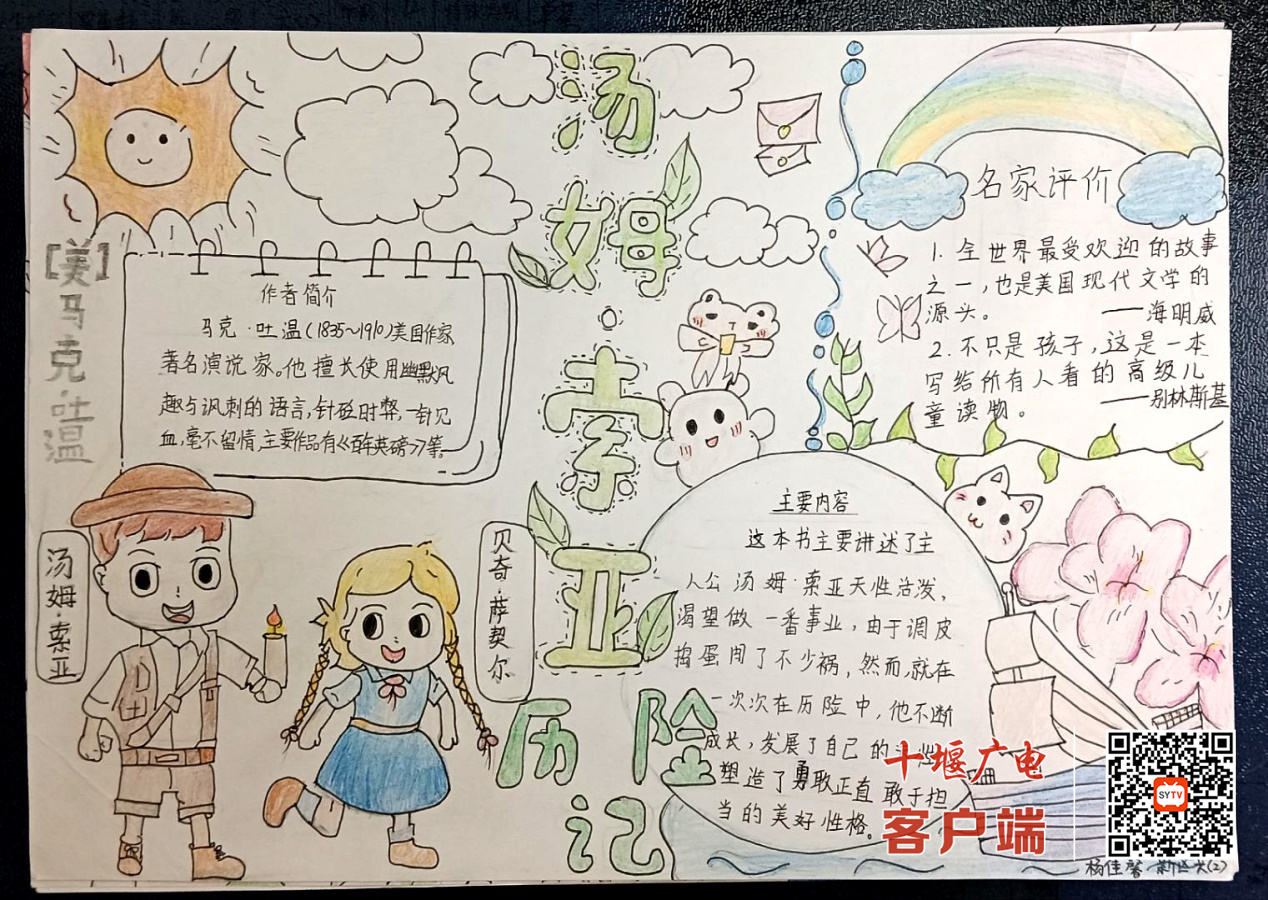 汤姆·索亚
历险记
[美]马克·吐温
作者简介
马克·吐温(1835~1910)美国作家
著名演说家。他擅长使用幽默风
趣与讽刺的语言,针砭时弊,一针见
血,毫不留情,主要作品有《百万英磅》等。
汤姆·索亚
贝奇·萨契尔
名家评价
1.全世界最受欢迎的故事
之一,也是美国现代文学的
源头。——海明威
2.不只是孩子,这是一本
写给所有人看的高级儿
童读物。——别林斯基
主要内容
这本书主要讲述了主
人公汤姆·索亚天性活泼,
渴望做一番事业,由于调皮
捣蛋闯了不少祸,然而,就在
一次次在历险中,他不断
成长,发展了自己的
塑造了勇敢正直敢于担
当的美好性格。
十堰广电
客户端
SYTV
杨佳馨